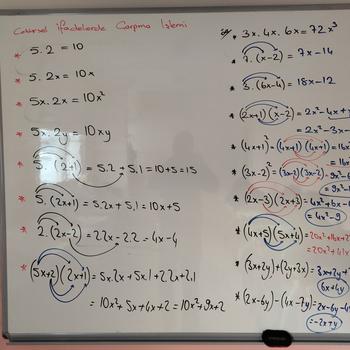 Cebirsel ifadelerde Çarpma İşlemi
* 5.2 = 10
* 5.2x = 10x
* 5x.2x = 10x²
* 5x.2y = 10xy
* 5.(2+1) = 5.2+5.1=10+5=15
* 5.(2x+1) = 5.2x+5.1=10x+5
* 2.(2x-2) = 2.2x-2.2=4x-4
* (5x+2)(2x+1)=5x.2x+5x.1+2.2x+2.1
= 10x²+5x+4x+2=10x²+9x+2
* 3x.4x.6x=72x³
* 7.(x-2) = 7x-14
* 3.(6x-4) = 18x-12
* (2x+1)(x-2) = 2x²-4x+x
= 2x²-3x-
* (4x+1)²=(4x+1)(4x+1)=16x²
= 16x
* (3x-2)²=(3x-2)(3x-2)=9x²-6
= 9x²-1
* (2x-3)(2x+3)=4x²+6x-
= 4x²-9
* (4x+5)(5x+4)=20x²+16x+2
= 20x²+41x
* (3x+2y)+(2y+3x)=3x+2y+
6x+4y
* (2x-6y)-(4x-7y)=2x-6y-4
=-2x+y